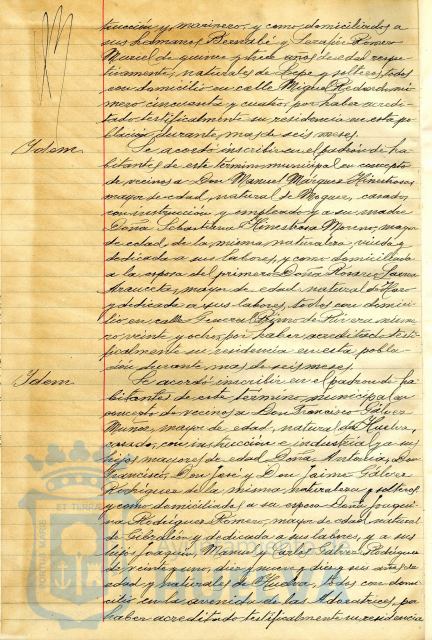 trucción y marinero, y como domiciliados a
sus hermanos Bernabé y Serafín Romero
Muriel de quince y trece años de edad respec-
tivamente, naturales de Lepe y solteros, todos
con domicilio en calle Miguel Redondo nú-
mero cincuenta y cuatro, por haber acredi-
tado testificalmente su residencia en esta po-
blación, durante mas de seis meses.
Idem
Se acordó inscribir en el padrón de ha-
bitantes de este término municipal en concepto
de vecinos a Don Manuel Márquez Hinestrosa
mayor de edad, natural de Moguer, casado,
con instrucción y empleado y a su madre
Doña Sebastiana Hinestrosa Moreno, mayor
de edad, de la misma naturaleza, viuda y
dedicada a sus labores, y como domiciliada
a la esposa del primero Doña Rosario
mayor de edad, natural de Haro
y dedicada a sus labores, todos con domici-
lio en calle General Primo de Rivera núme-
ro veinte y ocho, por haber acreditado testi-
ficalmente su residencia en esta pobla-
ción durante mas de seis meses.
Idem
Se acordó inscribir en el padrón de ha-
bitantes de este término municipal en
concepto de vecinos a Don Francisco Gálvez
Muñoz, mayor de edad, natural de Huelva,
casado, con instrucción e industrial y a sus
hijos mayores de edad Doña Antonia, Don
Francisco, Don José y Don Jaime Gálvez
Rodríguez de la misma naturaleza y solteros
y como domiciliados a su esposa Doña Joaqui-
na Rodríguez Romero, mayor de edad, natural
de Gibraleón y dedicada a sus labores, y a sus
hijos Joaquín, Manuel, Carlos Gálvez Rodríguez
de veinte y uno, diez y nueve y diez y seis años de
edad y naturales de Huelva, todos con domi-
cilio en la avenida de las Adoratrices, por
haber acreditado testificalmente su residencia
ET TERRAE
PORTUS MARIS
HUELVA